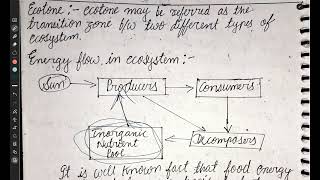 Ecotone :- ecotone may be referred as the
transition zone b/w two different types of
ecosystem.
Energy flow in ecosystem :-
Sun
Producers
Consumers
Inorganic
Nutrient
Pool
Decomposers
It is will known fact that food energy